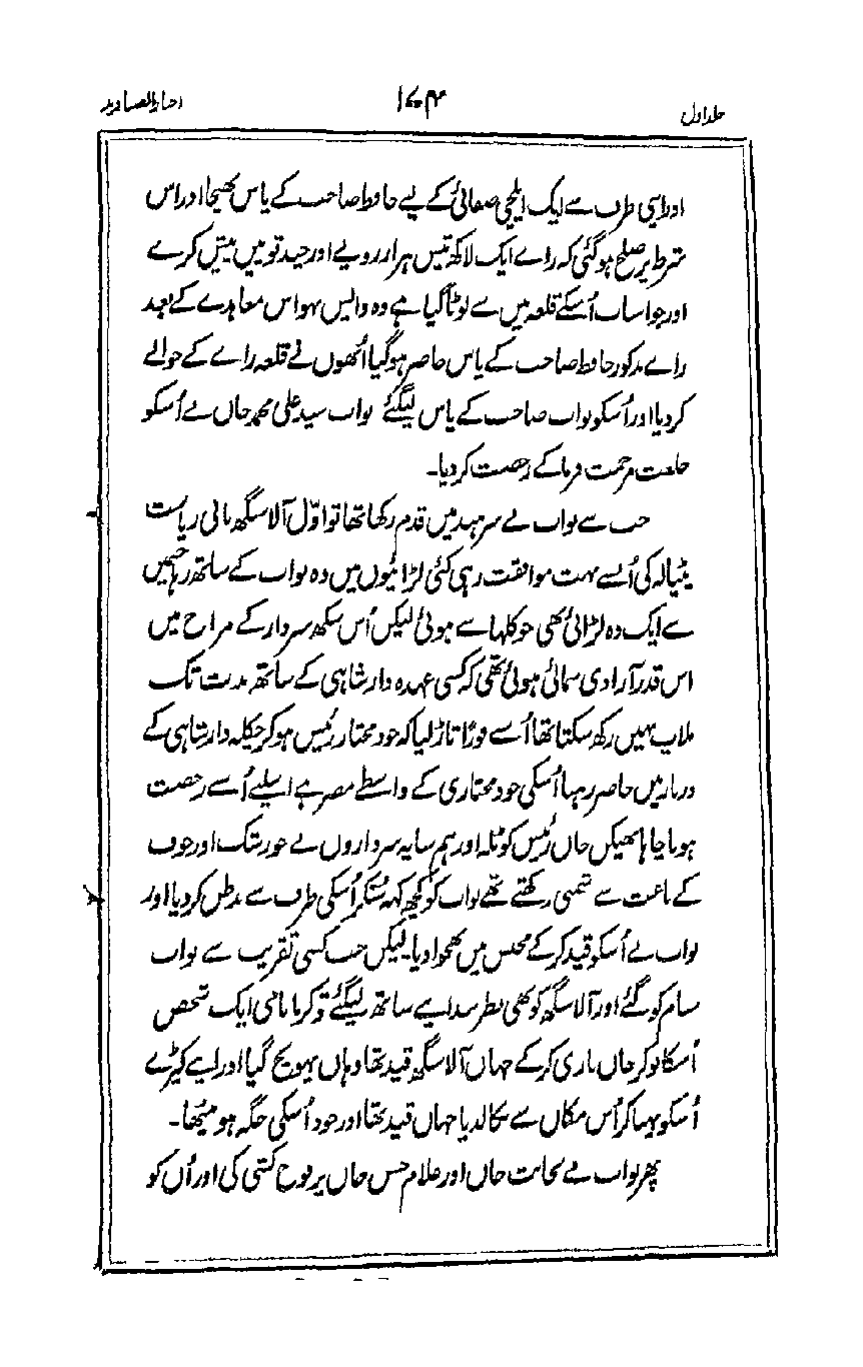 جلد اول ۱۷۴ اخبار الصنادید
اور اپنی طرف سے ایک ایلچی صفائی کے لیے حافظ صاحب کے پاس بھیجا اور اس
شرط پر صلح ہو گئی کہ راے ایک لاکھ تیس ہزار روپے اور چند توپیں پیش کرے
اور جو اسباب اُسکے قلعہ میں سے لوٹا گیا ہے وہ واپس ہو اس معاہدے کے بعد
راے مذکور حافظ صاحب کے پاس حاضر ہو گیا اُنھوں نے قلعہ راے کے حوالے
کر دیا اور اُسکو نواب صاحب کے پاس لیگئے نواب سید علی محمد خاں نے اُسکو
خلعت مرحمت فرما کے رخصت کر دیا۔
جب سے نواب نے سرہند میں قدم رکھا تھا تو اوّل آلا سنگھ بانی ریاست
پٹیالہ کی اُنسے بہت موافقت رہی کئی لڑائیوں میں وہ نواب کے ساتھ رہا جنمیں
سے ایک وہ لڑائی بھی جو کلہا سے ہوئی لیکن اُس سکھ سردار کے مزاج میں
اس قدر آزادی سمائی ہوئی تھی کہ کسی عہدہ دار شاہی کے ساتھ مدت تک
ملاپ نہیں رکھ سکتا تھا اُسنے فوراً تاڑ لیا کہ خود مختار رئیس ہو کر چکلہ دار شاہی کے
دربار میں حاضر رہنا اُسکی خود مختاری کے واسطے مضر ہے اسلیے اُسنے رخصت
ہونا چاہا بھیکن خاں رئیس کوٹلہ اور ہمسایہ سرداروں نے جو رشک اور خوف
کے باعث سے دشمنی رکھتے تھے نواب کو کچھ کہہ سُنکر اُسکی طرف سے بدظن کر دیا اور
نواب نے اُسکو قید کر کے محبس میں بھجوا دیا۔ لیکن جب کسی تقریب سے نواب
سنام کو گئے اور آلا سنگھ کو بھی نظر بند اپنے ساتھ لیگئے تو کرما نامی ایک شخص
اُسکا نوکر جاں بازی کر کے جہاں آلا سنگھ قید تھا وہاں پہونچ گیا اور اپنے کپڑے
اُسکو پہنا کر اُس مکان سے نکالدیا جہاں قید تھا اور خود اُسکی جگہ ہو بیٹھا۔
پھر نواب نے نجابت خاں اور غلام حسن خاں پر فوج کشی کی اور اُن کو